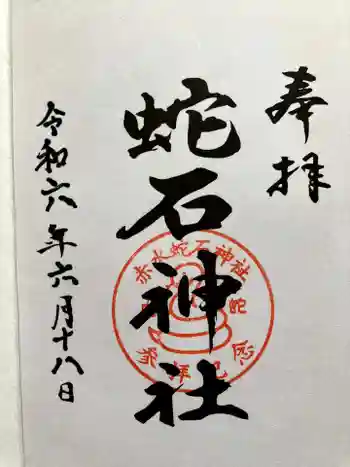 奉拝
蛇石神社
令和六年六月十八日
赤火蛇石神社
参拝記念